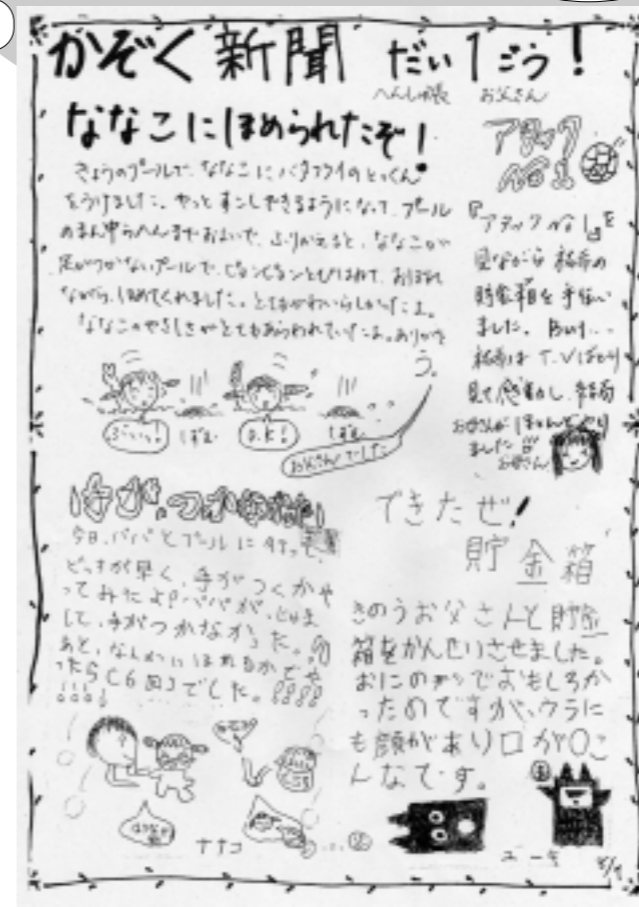 かぞく新聞 だい1ごう!
へんしゅう長 お父さん
ななこにほめられたぞ!
きょうのプールで、ななこにバタフライのとっくん
をうけました。やっとすこしできるようになって、プール
のまん中らへんまでおよいで、ふりかえると、ななこが
足がつかないプールで、ピョンピョンとびはねて、おぼれ
ながら、ほめてくれました。とてもかわいらしかったよ。
ななこのやさしさがとてもあらわれていたよ。ありがと
う。
ぷはっ!
O.K!
お父さんでした
アタック
No1
『アタックNo1』を
見ながら
貯金箱を手伝い
ました。But...
T.Vばかり
見て感動し、結局
お母さんがほとんどやり
ました
お母さん
手が、つかない
今日、パパとプールに行って
どっちが早く、手がつくかや
ってみたよ!パパが、じゃま
して、手がつかなかった。
あと、なんかいもぐれるかとや
ったら「6回」でした。
ナナコ
できたぜ!
貯金箱
きのうお父さんと貯金
箱をかんせいさせました。
おにのかおでおもしろか
ったのですが、ウラに
も顔があり口が〇こ
んなです。